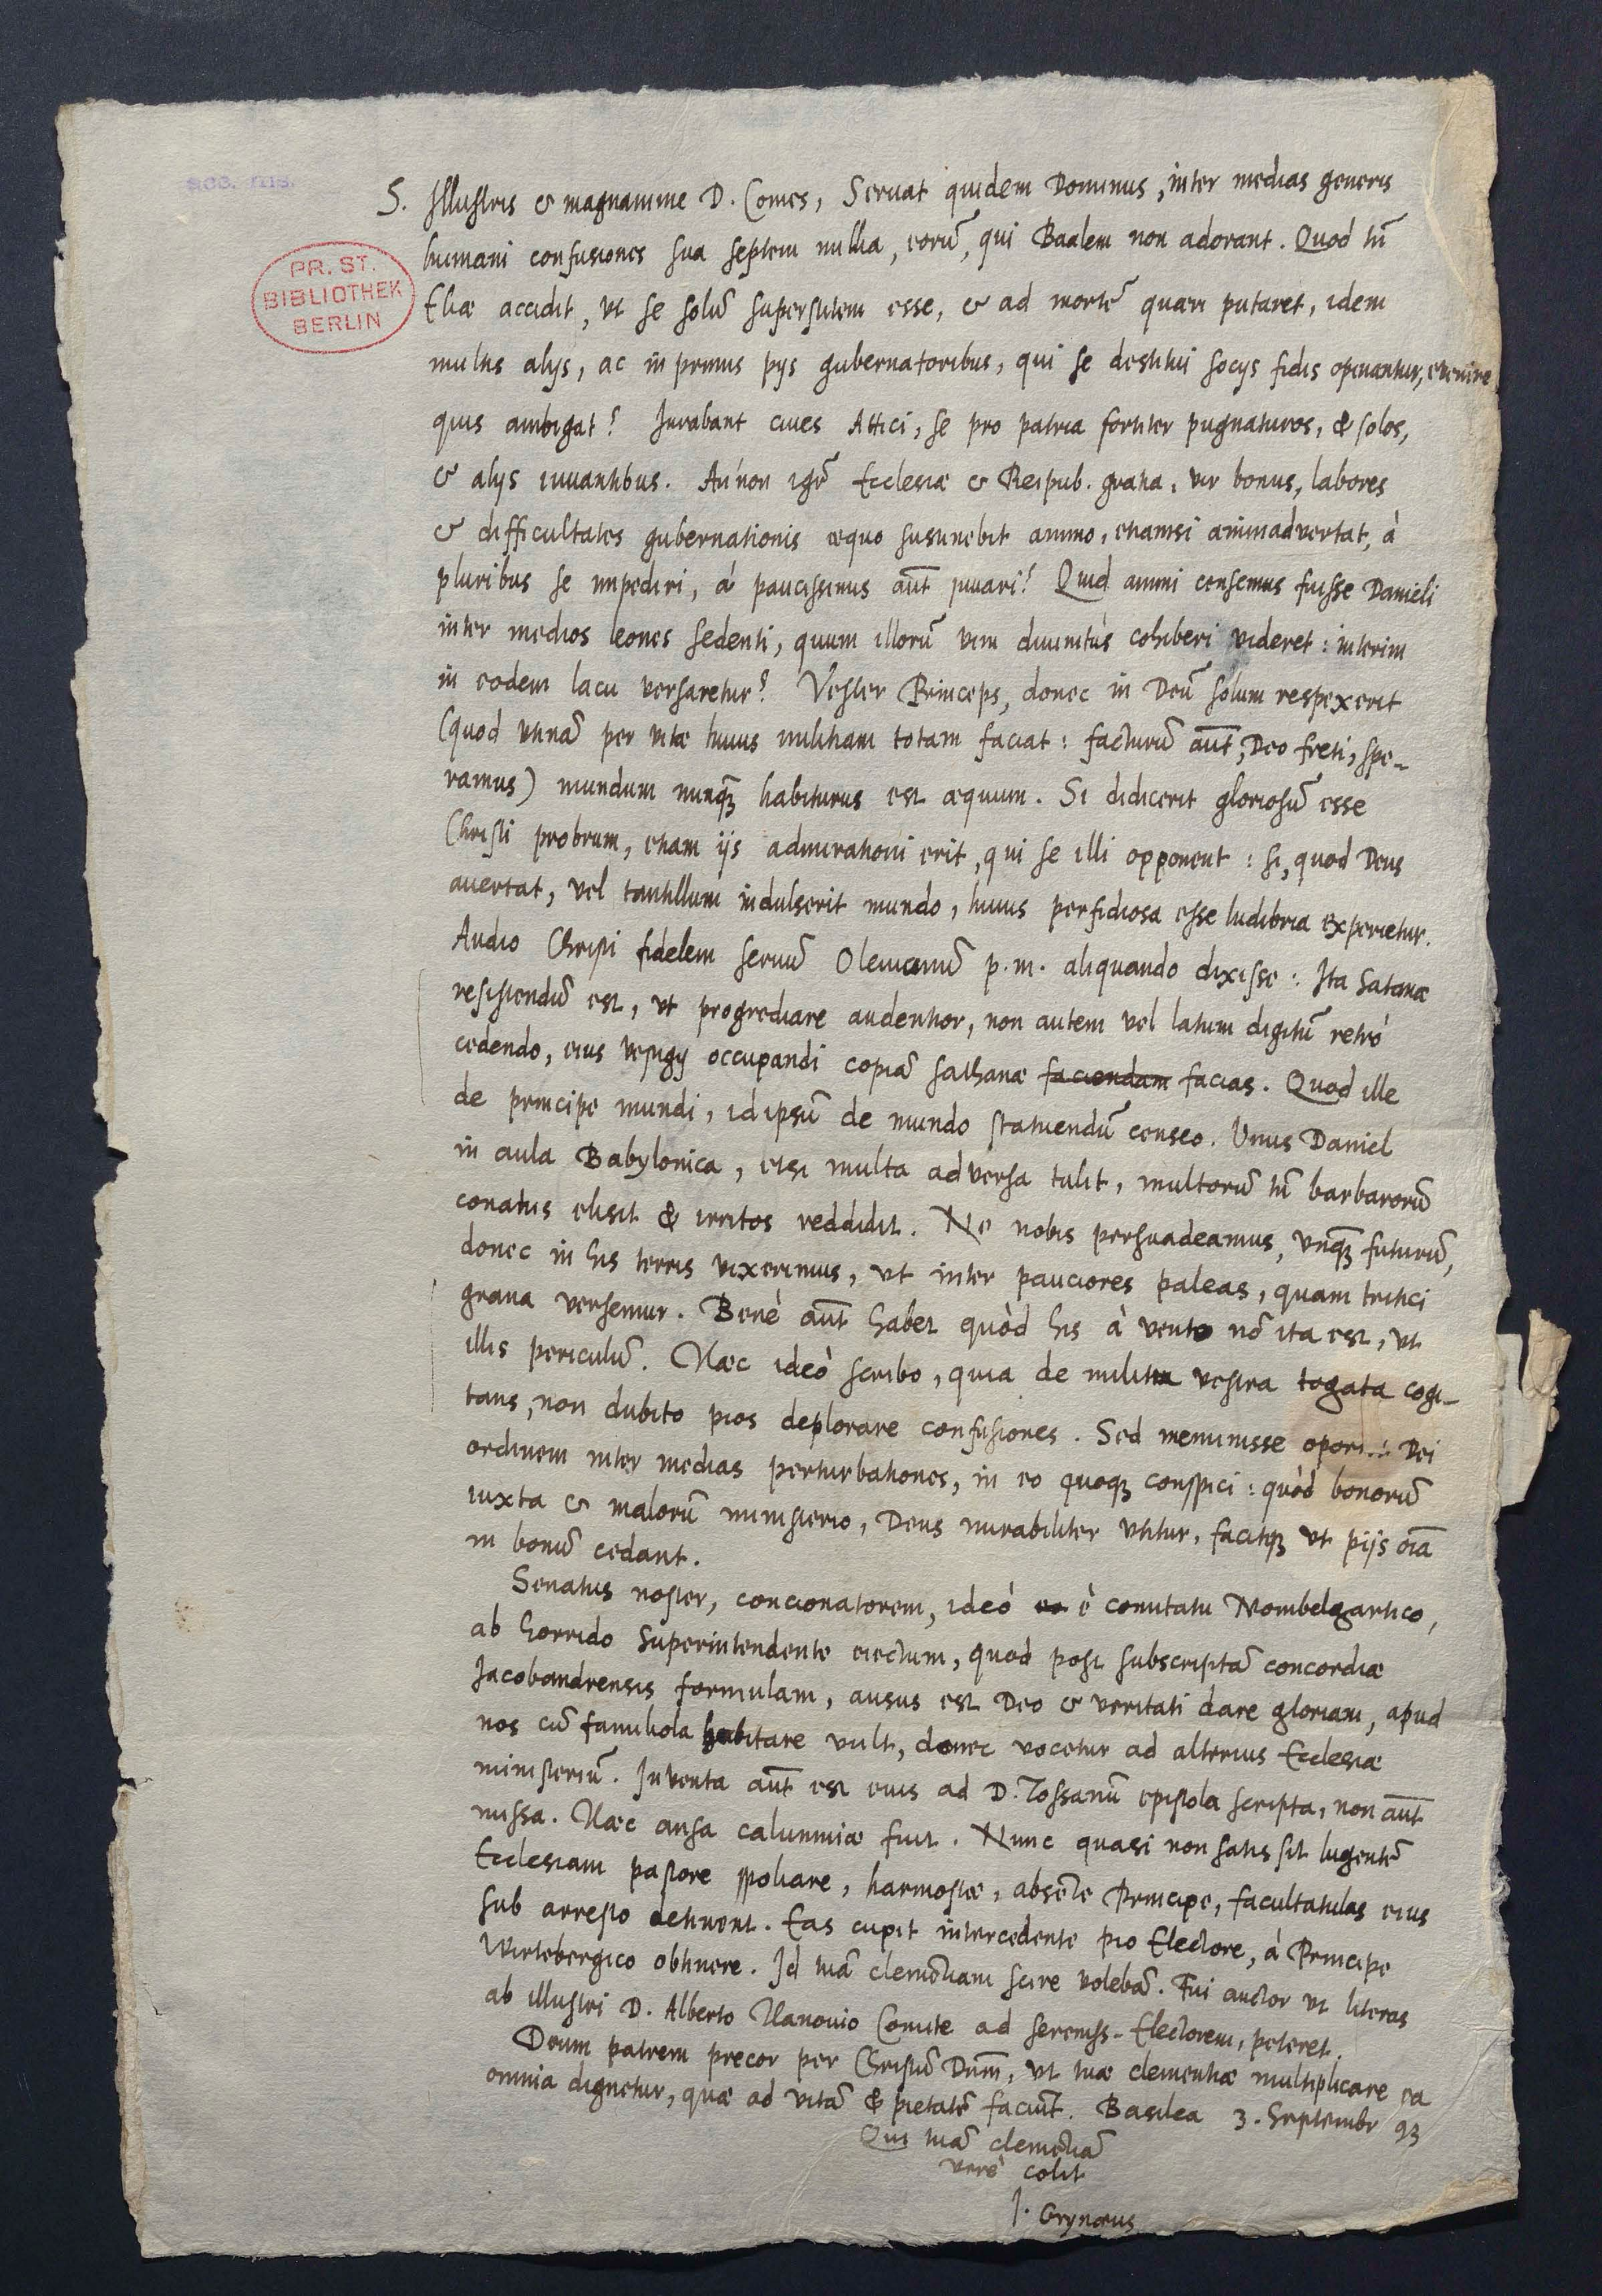 acc. ms.
PR. ST.
BIBLIOTHEK
BERLIN
S. Illustris & magnanime D. Comes, Seruat quidem Dominus, inter medias generis
humani confusiones sua septem millia, eorū, qui Baalem non adorant. Quod tñ
Eliæ accidit, vt se solū superstitem esse, & ad mortē quæri putaret, idem
multis alijs, ac in primis pijs gubernatoribus, qui se destitui socijs fidis opinantur, evenire
quis ambigat? Jurabant ciues Attici, se pro patria fortiter pugnaturos, & solos,
& alijs iuuantibus. An non igr̃ Ecclesiæ & Reipub. gratia, vir bonus, labores
& difficultates gubernationis æquo sustinebit animo, etiamsi animadvertat, à
pluribus se impediri, à paucissimis aūt juvari? Quid animi censemus fuisse Danieli
inter medios leones sedenti, quum illorū vim diuinitùs cohiberi videret: interim
in eodem lacu versaretur? Vester Princeps, donec in Deū solum respexerit
(quod vtinā per vitæ huius militiam totam faciat: facturū aūt, Deo freti, spe-
ramus) mundum nunq̃ habiturus est æquum. Si didicerit gloriosū esse
Christi probrum, etiam ijs admirationi erit, qui se illi opponent: si, quod Deus
auertat, vel tantillum indulserit mundo, huius perfidiosa esse ludibria experietur.
Audio Christi fidelem seruū Oleuianū p.m. aliquando dixisse: Ita Satanæ
resistendū est, vt progrediare audentior, non autem vel latum digitū retrò
cedendo, eius vestigij occupandi copiā sathanæ faciendam facias. Quod ille
de principe mundi, id ipsū de mundo statuendū censeo. Unus Daniel
in aula Babylonica, etsi multa adversa tulit, multorū tñ barbarorū
conatus elisit & irritos reddidit. Ne nobis persuadeamus, vnq̃ futurū,
donec in his terris vixerimus, vt inter pauciores paleas, quam tritici
grana versemur. Benè aūt habet quòd his à vento nō ita est, vt
illis periculū. Hæc ideò scribo, quia de militia vestra togata cogi-
tans, non dubito pios deplorare confusiones. Sed meminisse Dei
ordinem inter medias perturbationes, in eo quoq̃ conspici: quòd bonorū
iuxta & malorū ministerio, Deus mirabiliter vtitur, facitq̃ vt pijs oīa
in bonū cedant.
Senatus noster, concionatorem, ideò eo è comitatu Mombelgartico,
ab horrido Superintendente eiectum, quod post subscriptā concordiæ
Jacobandrensis formulam, ausus est Deo & veritati dare gloriam, apud
nos cū familiola habitare vult, donec vocetur ad alterius Ecclesiæ
ministeriū. Inventa aūt est eius ad D. Tossanū epistola scripta, non aūt
missa. Hæc ansa calumniæ fuit. Nunc quasi non satis sit lugentē
Ecclesiam pastore spoliare, harmostæ, absēte Principe, facultatulas eius
sub arresto detinent. Eas cupit intercedente pio Electore, à Principe
Wirtebergico obtinere. Id tuā clemētiam scire volebā. Fui auctor vt literas
ab illustri D. Alberto Nanouio Comite ad sereniss. Electorem, peteret.
Deum patrem precor per Christū Dnm̄, vt tuæ clementiæ multiplicare ea
omnia dignetur, quæ ad vitā & pietatē faciūt. Basilea 3. Septembr 93
Qui tuā clemētiā
verè colit
J. Grynæus